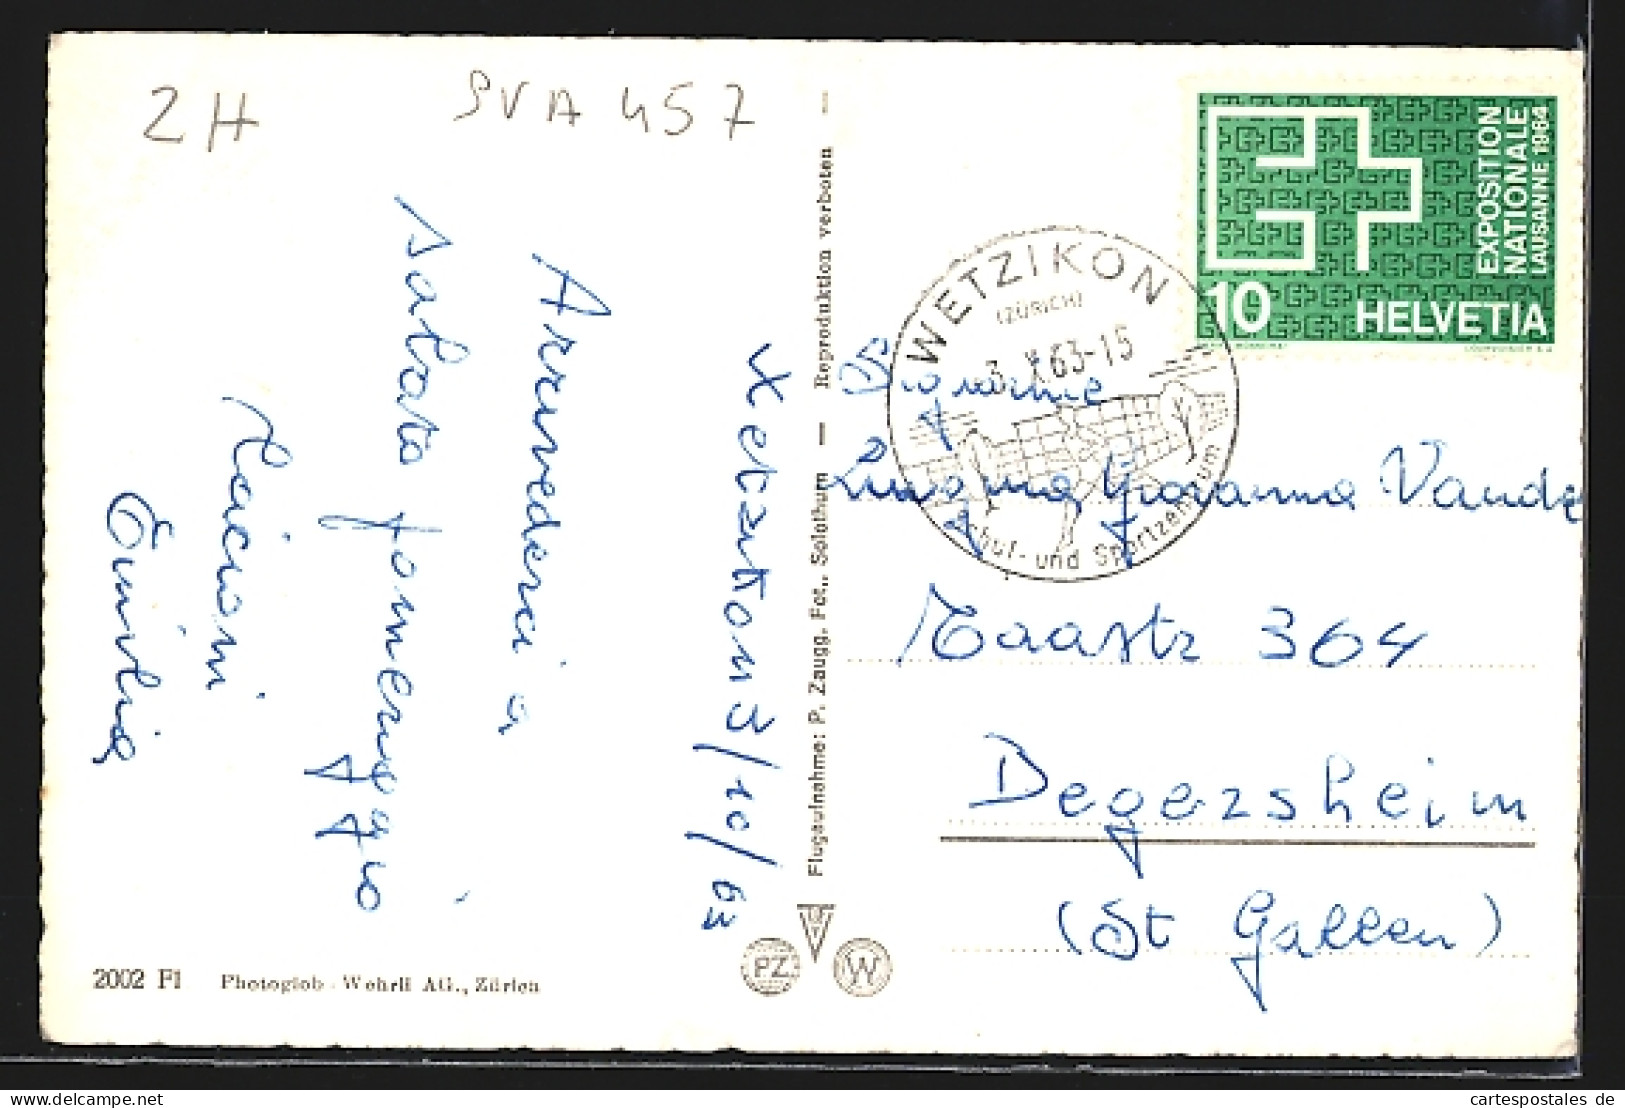 ZH
SVA 457
Wetzikon 3/10/63
Arrivederci a
sabato pomeriggio
Bacioni
Emilia
2002 Fl Photoglob-Wehrli AG., Zürich
Flugaufnahme: P. Zaugg, Fot., Solothurn — Reproduktion verboten —
PZ
W
EXPOSITION
NATIONALE
LAUSANNE 1964
10 HELVETIA
WETZIKON
(ZÜRICH)
3.X.63-15
Schul- und Sportzentrum
Giovanna
364
Degersheim
(St Gallen)
cartespostales de